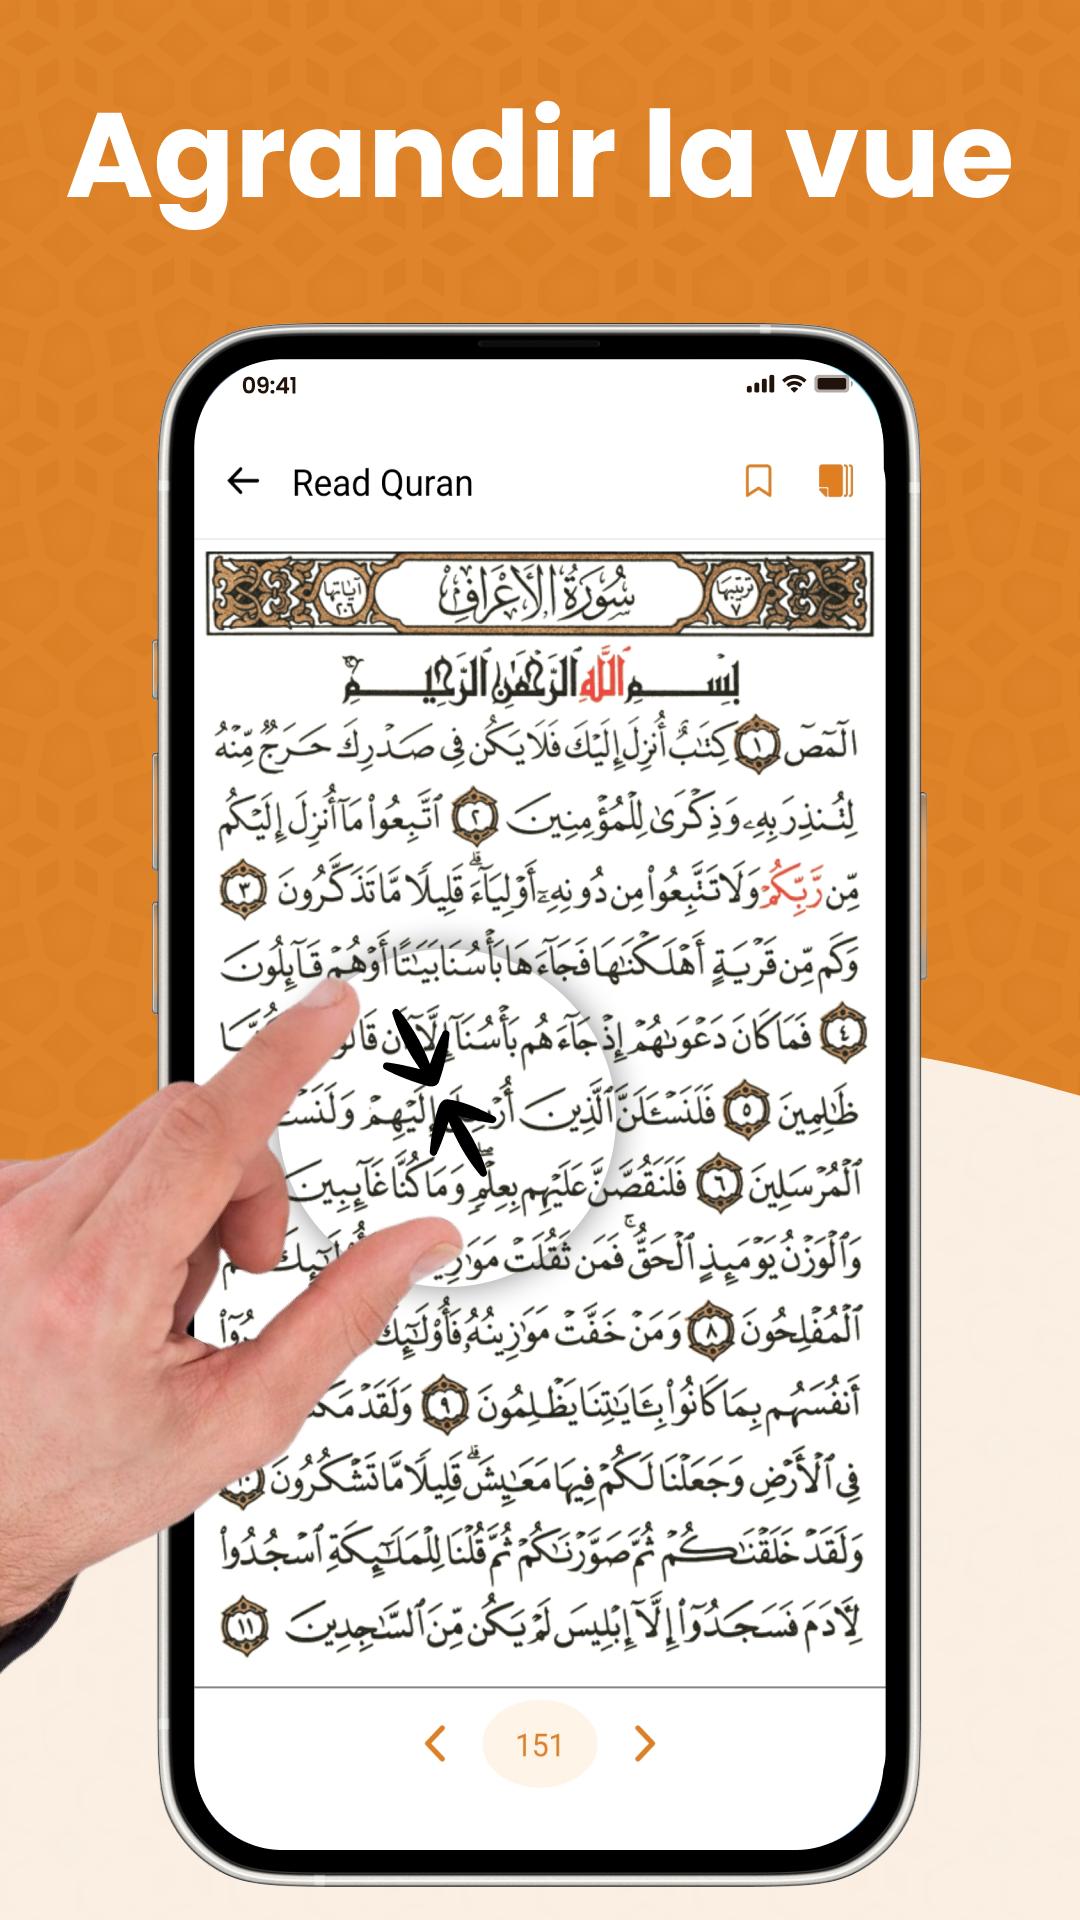 Agrandir la vue
09:41
Read Quran
ترتيبها ٧ سُورَةُ الأَعْرَافِ آياتها ٢٠٦
بِسْمِ ٱللَّهِ ٱلرَّحْمَٰنِ ٱلرَّحِيمِ
الٓمٓصٓ ١ كِتَٰبٌ أُنزِلَ إِلَيْكَ فَلَا يَكُن فِى صَدْرِكَ حَرَجٌ مِّنْهُ
لِتُنذِرَ بِهِۦ وَذِكْرَىٰ لِلْمُؤْمِنِينَ ٢ ٱتَّبِعُوا۟ مَآ أُنزِلَ إِلَيْكُم
مِّن رَّبِّكُمْ وَلَا تَتَّبِعُوا۟ مِن دُونِهِۦٓ أَوْلِيَآءَ ۗ قَلِيلًا مَّا تَذَكَّرُونَ ٣
وَكَم مِّن قَرْيَةٍ أَهْلَكْنَٰهَا فَجَآءَهَا بَأْسُنَا بَيَٰتًا أَوْ هُمْ قَآئِلُونَ
٤ فَمَا كَانَ دَعْوَىٰهُمْ إِذْ جَآءَهُم بَأْسُنَآ إِلَّآ أَن
ظَٰلِمِينَ ٥ فَلَنَسْـَٔلَنَّ ٱلَّذِينَ أُرْسِلَ إِلَيْهِمْ
ٱلْمُرْسَلِينَ ٦ فَلَنَقُصَّنَّ عَلَيْهِم بِعِلْمٍ ۖ وَمَا كُنَّا غَآئِبِينَ
وَٱلْوَزْنُ يَوْمَئِذٍ ٱلْحَقُّ ۚ فَمَن ثَقُلَتْ
ٱلْمُفْلِحُونَ ٨ وَمَنْ خَفَّتْ مَوَٰزِينُهُۥ فَأُو۟لَٰٓئِكَ
أَنفُسَهُم بِمَا كَانُوا۟ بِـَٔايَٰتِنَا يَظْلِمُونَ ٩ وَلَقَدْ
فِى ٱلْأَرْضِ وَجَعَلْنَا لَكُمْ فِيهَا مَعَٰيِشَ ۗ قَلِيلًا مَّا تَشْكُرُونَ ١٠
وَلَقَدْ خَلَقْنَٰكُمْ ثُمَّ صَوَّرْنَٰكُمْ ثُمَّ قُلْنَا لِلْمَلَٰٓئِكَةِ ٱسْجُدُوا۟
لِـَٔادَمَ فَسَجَدُوٓا۟ إِلَّآ إِبْلِيسَ لَمْ يَكُن مِّنَ ٱلسَّٰجِدِينَ ١١
151